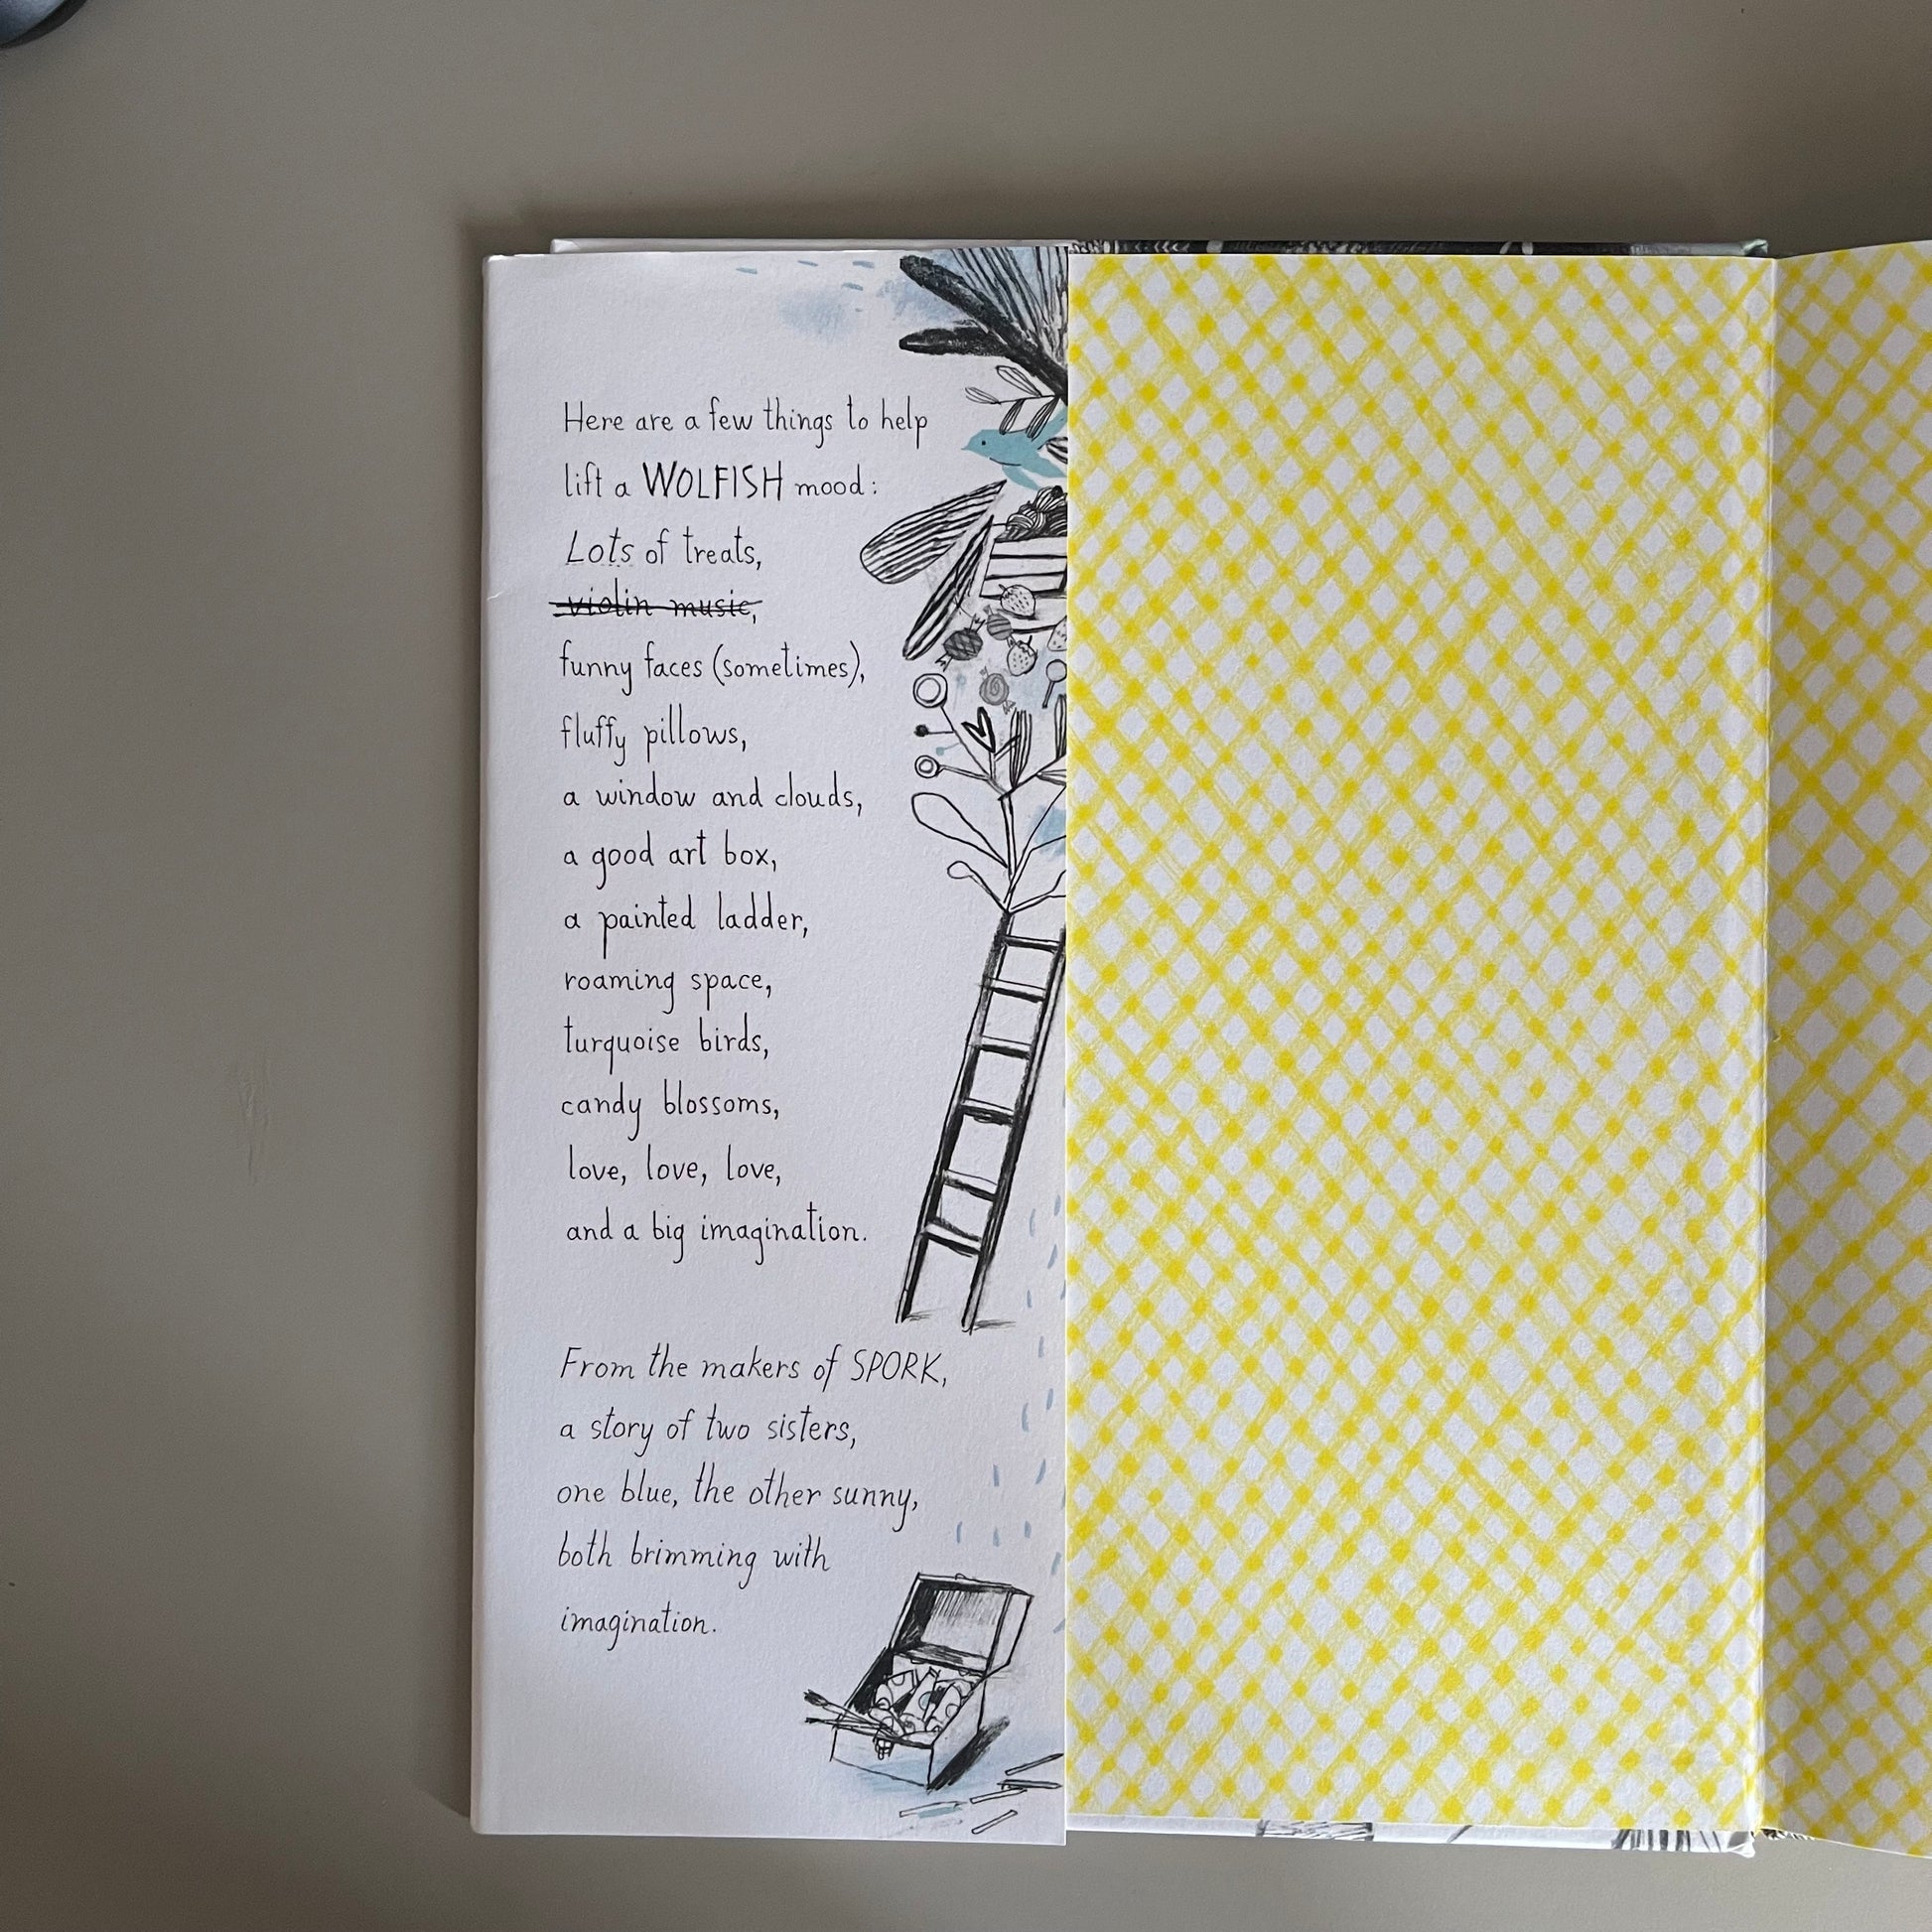 Here are a few things to help
lift a WOLFISH mood:
Lots of treats,
violin music,
funny faces (sometimes),
fluffy pillows,
a window and clouds,
a good art box,
a painted ladder,
roaming space,
turquoise birds,
candy blossoms,
love, love, love,
and a big imagination.
From the makers of SPORK,
a story of two sisters,
one blue, the other sunny,
both brimming with
imagination.